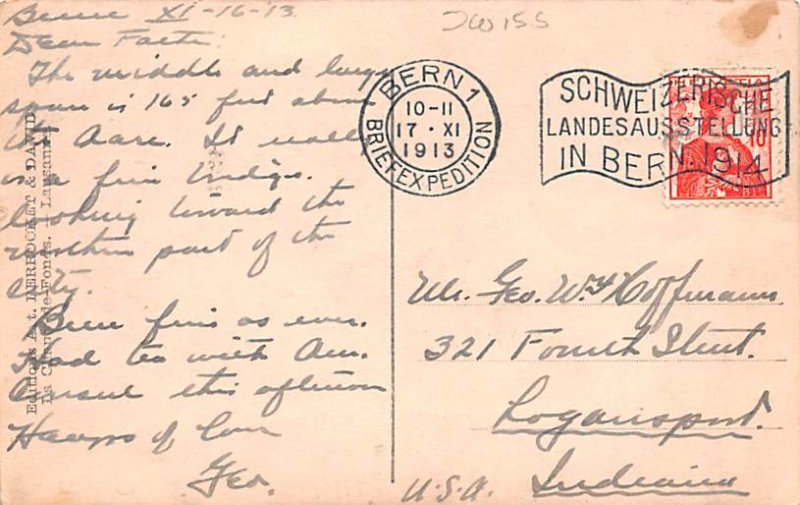 Berne XI-16-13.
JW155
Dear Folks:
The middle and large
span is 165 feet above
the Aare. It really
is a fine bridge.
Looking toward the
northern part of the
City.
Been fine as ever.
Had tea with Am.
Consul this afternoon
of
Geo.
BERN 1
10-11
17 · XI
1913
BRIEFEXPEDITION
SCHWEIZERISCHE
LANDESAUSSTELLUNG
IN BERN. 1914
HELVETIA
10
Mr. Geo. W. Hoffmann
321 Fourth Street.
Logansport.
Indiana
U.S.A.
Editions Art. PERROCHET & DAVID
La Chaux-de-Fonds. — Lausanne